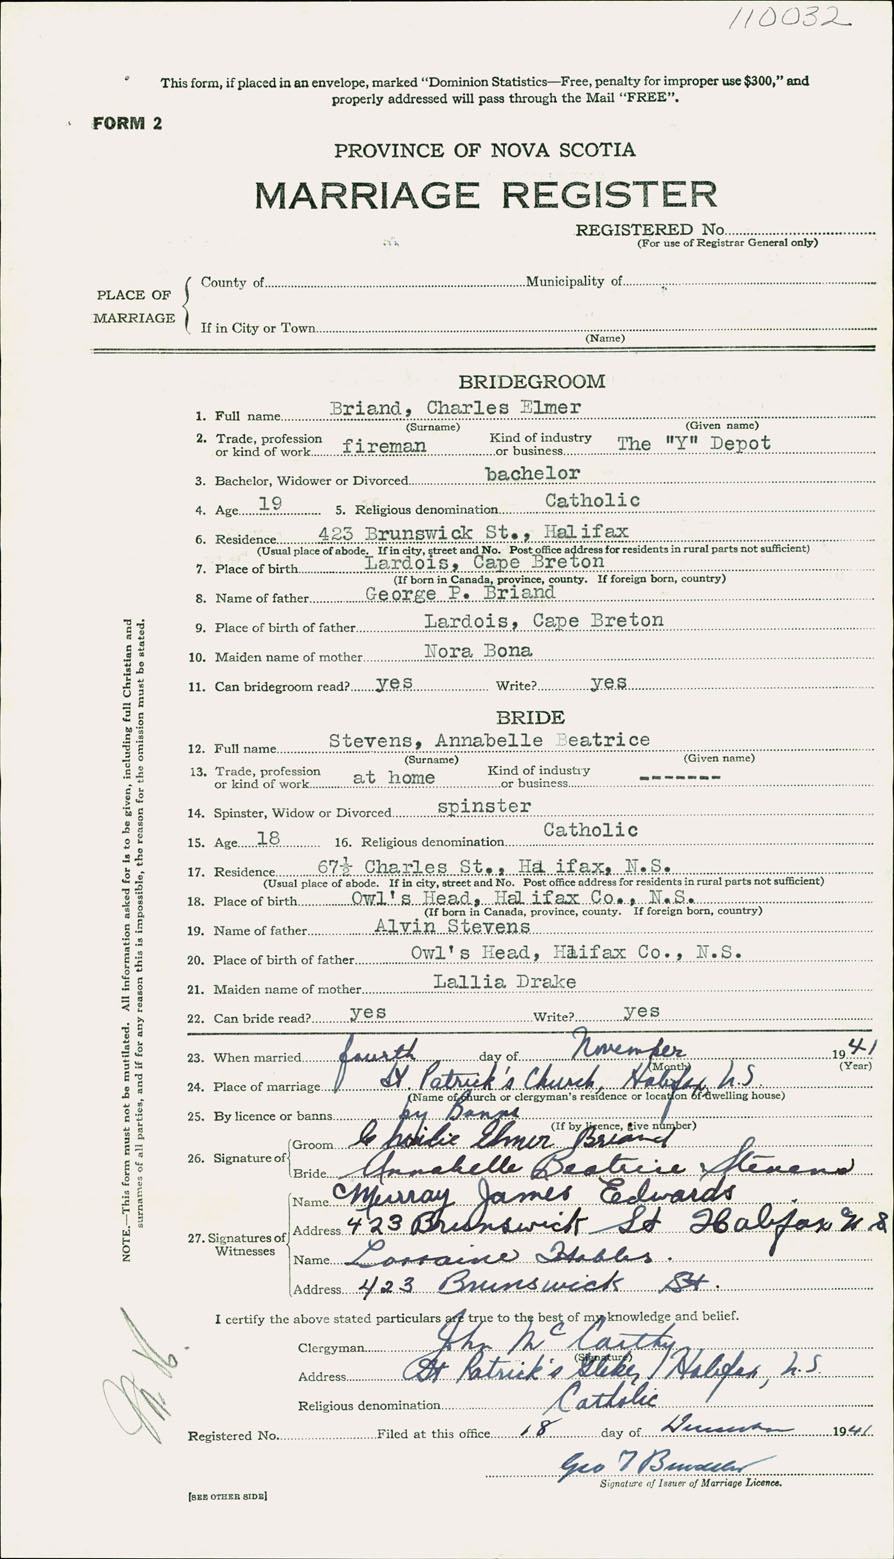 110032
This form, if placed in an envelope, marked “Dominion Statistics—Free, penalty for improper use $300,” and
properly addressed will pass through the Mail “FREE”.
FORM 2
PROVINCE OF NOVA SCOTIA
MARRIAGE REGISTER
REGISTERED No
(For use of Registrar General only)
PLACE OF MARRIAGE
County of Municipality of
If in City or Town
(Name)
BRIDEGROOM
1. Full name Briand, Charles Elmer
(Surname) (Given name)
2. Trade, profession or kind of work fireman Kind of industry or business The "Y" Depot
3. Bachelor, Widower or Divorced bachelor
4. Age 19 5. Religious denomination Catholic
6. Residence 423 Brunswick St., Halifax
(Usual place of abode. If in city, street and No. Post office address for residents in rural parts not sufficient)
7. Place of birth Lardois, Cape Breton
(If born in Canada, province, county. If foreign born, country)
8. Name of father George P. Briand
9. Place of birth of father Lardois, Cape Breton
10. Maiden name of mother Nora Bona
11. Can bridegroom read? yes Write? yes
BRIDE
12. Full name Stevens, Annabelle Beatrice
(Surname) (Given name)
13. Trade, profession or kind of work at home Kind of industry or business -------
14. Spinster, Widow or Divorced spinster
15. Age 18 16. Religious denomination Catholic
17. Residence 67½ Charles St., Ha ifax, N.S.
(Usual place of abode. If in city, street and No. Post office address for residents in rural parts not sufficient)
18. Place of birth Owl's Head, Halifax Co., N.S.
(If born in Canada, province, county. If foreign born, country)
19. Name of father Alvin Stevens
20. Place of birth of father Owl's Head, Halifax Co., N.S.
21. Maiden name of mother Lallia Drake
22. Can bride read? yes Write? yes
23. When married fourth day of November 1941
(Month) (Year)
24. Place of marriage St. Patrick's Church, Halifax, N.S.
(Name of church or clergyman's residence or location of dwelling house)
25. By licence or banns by Banns
(If by licence, give number)
26. Signature of
Groom Charlie Elmer Briand
Bride Annabelle Beatrice Stevens
27. Signatures of Witnesses
Name Murray James Edwards
Address 423 Brunswick St Halifax N S
Name Lorraine
Address 423 Brunswick St.
I certify the above stated particulars are true to the best of my knowledge and belief.
Clergyman John McCarthy
(Signature)
Address St Patrick's Glebe, Halifax, N.S.
Religious denomination Catholic
Registered No. Filed at this office 18 day of 1941
Geo T
Signature of Issuer of Marriage Licence.
[SEE OTHER SIDE]
NOTE.—This form must not be mutilated. All information asked for is to be given, including full Christian and
surnames of all parties, and if for any reason this is impossible, the reason for the omission must be stated.